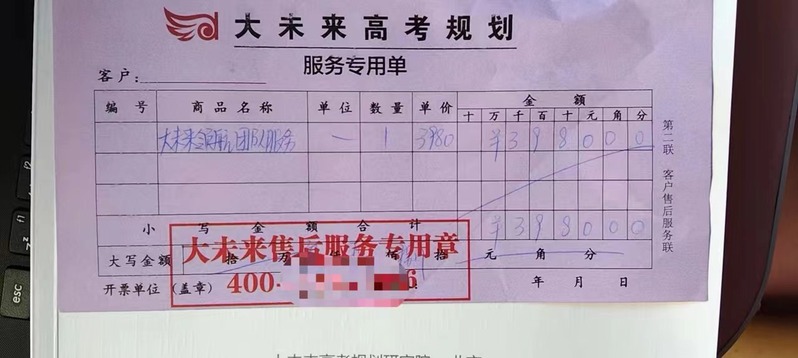 大未来高考规划
服务专用单
客户：
编号 商品名称 单位 数量 单价 金额
十 万 千 百 十 元 角 分
大未来领航团队服务 一 1 3980 ¥ 3 9 8 0 0 0
小写金额合计 ¥ 3 9 8 0 0 0
大未来售后服务专用章
大写金额 拾 万 佰 拾 元 角 分
开票单位（盖章） 400- 6 年 月 日
第二联 客户售后服务联
esc